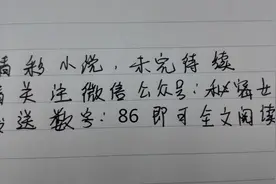 精彩小说，未完待续
请关注微信公众号：秘密士
发送数字：86 即可全文阅读